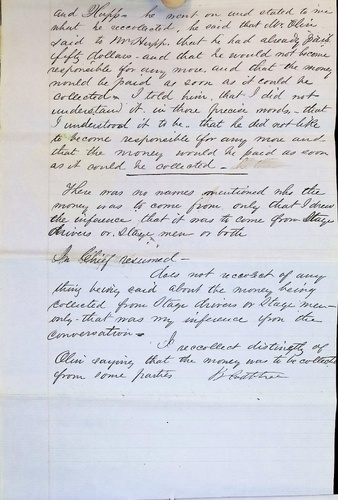 and Hupp - he went on and stated to me
what he reccolected, he said that Mr Olin
said to Mr Hupp. that he had already paid
fifty dollars - and that he would not become
responsible for any more, and that the money
would be paid as soon as it could be
collected. I told him, that I did not
understand it in those precise words - that
I understood it to be - that he did not like
to become responsible for any more and
that the money would be paid as soon
as it could be collected -
There was no names mentioned who the
money was to come from only that I drew
the inference that it was to come from Stage
drivers or Stage men or both
In Chief resumed -
does not recolect of any
thing being said about the money being
collected from Stage drivers or Stage men
only - that was my inference upon the
conversation -
I reccolect distinctly of
Olin saying that the money was to be collected
from some parties